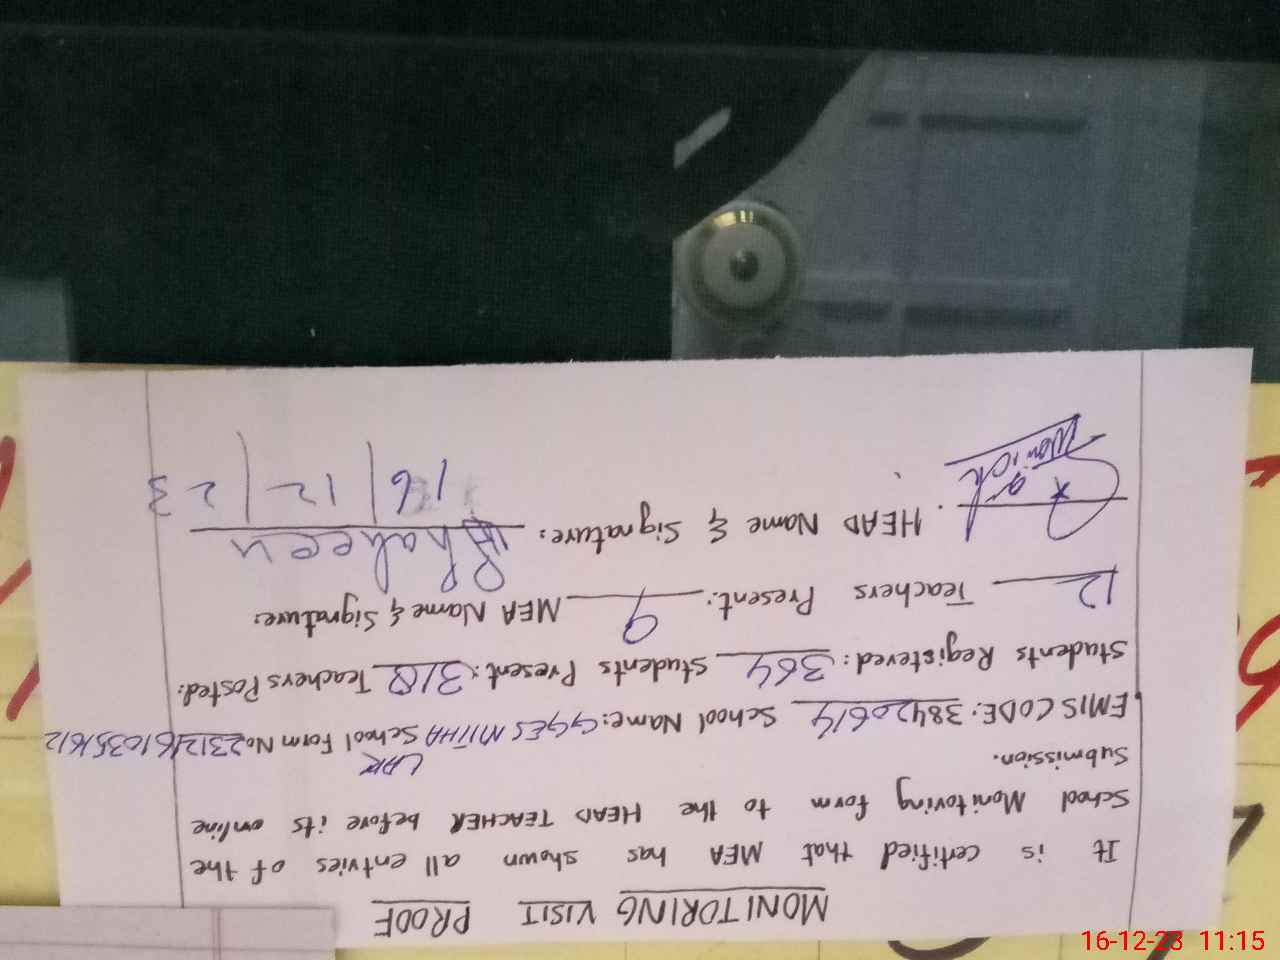 MONITORING VISIT PROOF
It is certified that MEA has shown all entries of the
School Monitoring form to the HEAD TEACHER before its online
Submission.
EMIS CODE: 38420614 School Name: GGES MITHA LAK School Form No
Students Registered: 364 Students Present: 318 Teachers Posted:
12 Teachers Present: 9 MEA Name & Signature:
HEAD Name & Signature: Shaheen
16/12/23
16-12-23 11:15